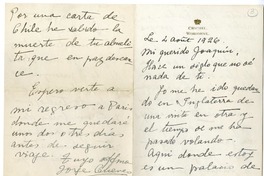 Le 4 Août 1926
Mi querido Joaquín.
Hace un siglo que no sé
nada de ti.
Yo me he ido quedan
do en Inglaterra de
una visita en otra y
el tiempo se me ha
pasado volando.
Aquí donde estoy
es un palacio de
Por una carta de
Chile he sabido la
muerte de tu abueli
ta que en paz descan
se.
Espero verte a
mi regreso a París
donde me quedaré
unos dos o tres días
antes de seguir
viaje.
Tuyo affmo